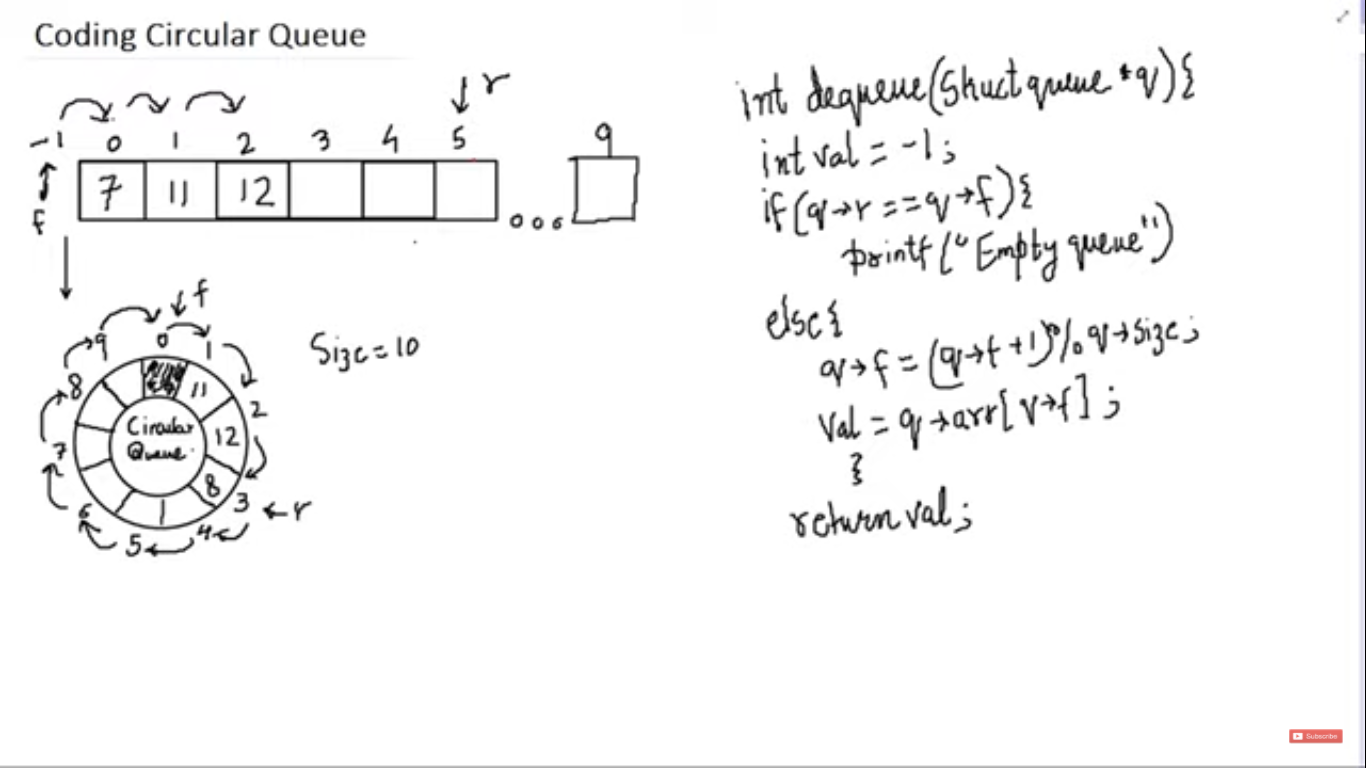 Coding Circular Queue
r
-1 0 1 2 3 4 5 9
7 11 12
f
f
Size = 10
9 0 1
8 11 2
Circular
Queue
12
7 8 3 r
6 5 4
int dequeue(Struct queue *q){
int val = -1;
if(q→r == q→f){
printf("Empty queue")
else{
q→f = (q→f +1)%q→size;
val = q→arr[q→f];
}
return val;
Subscribe